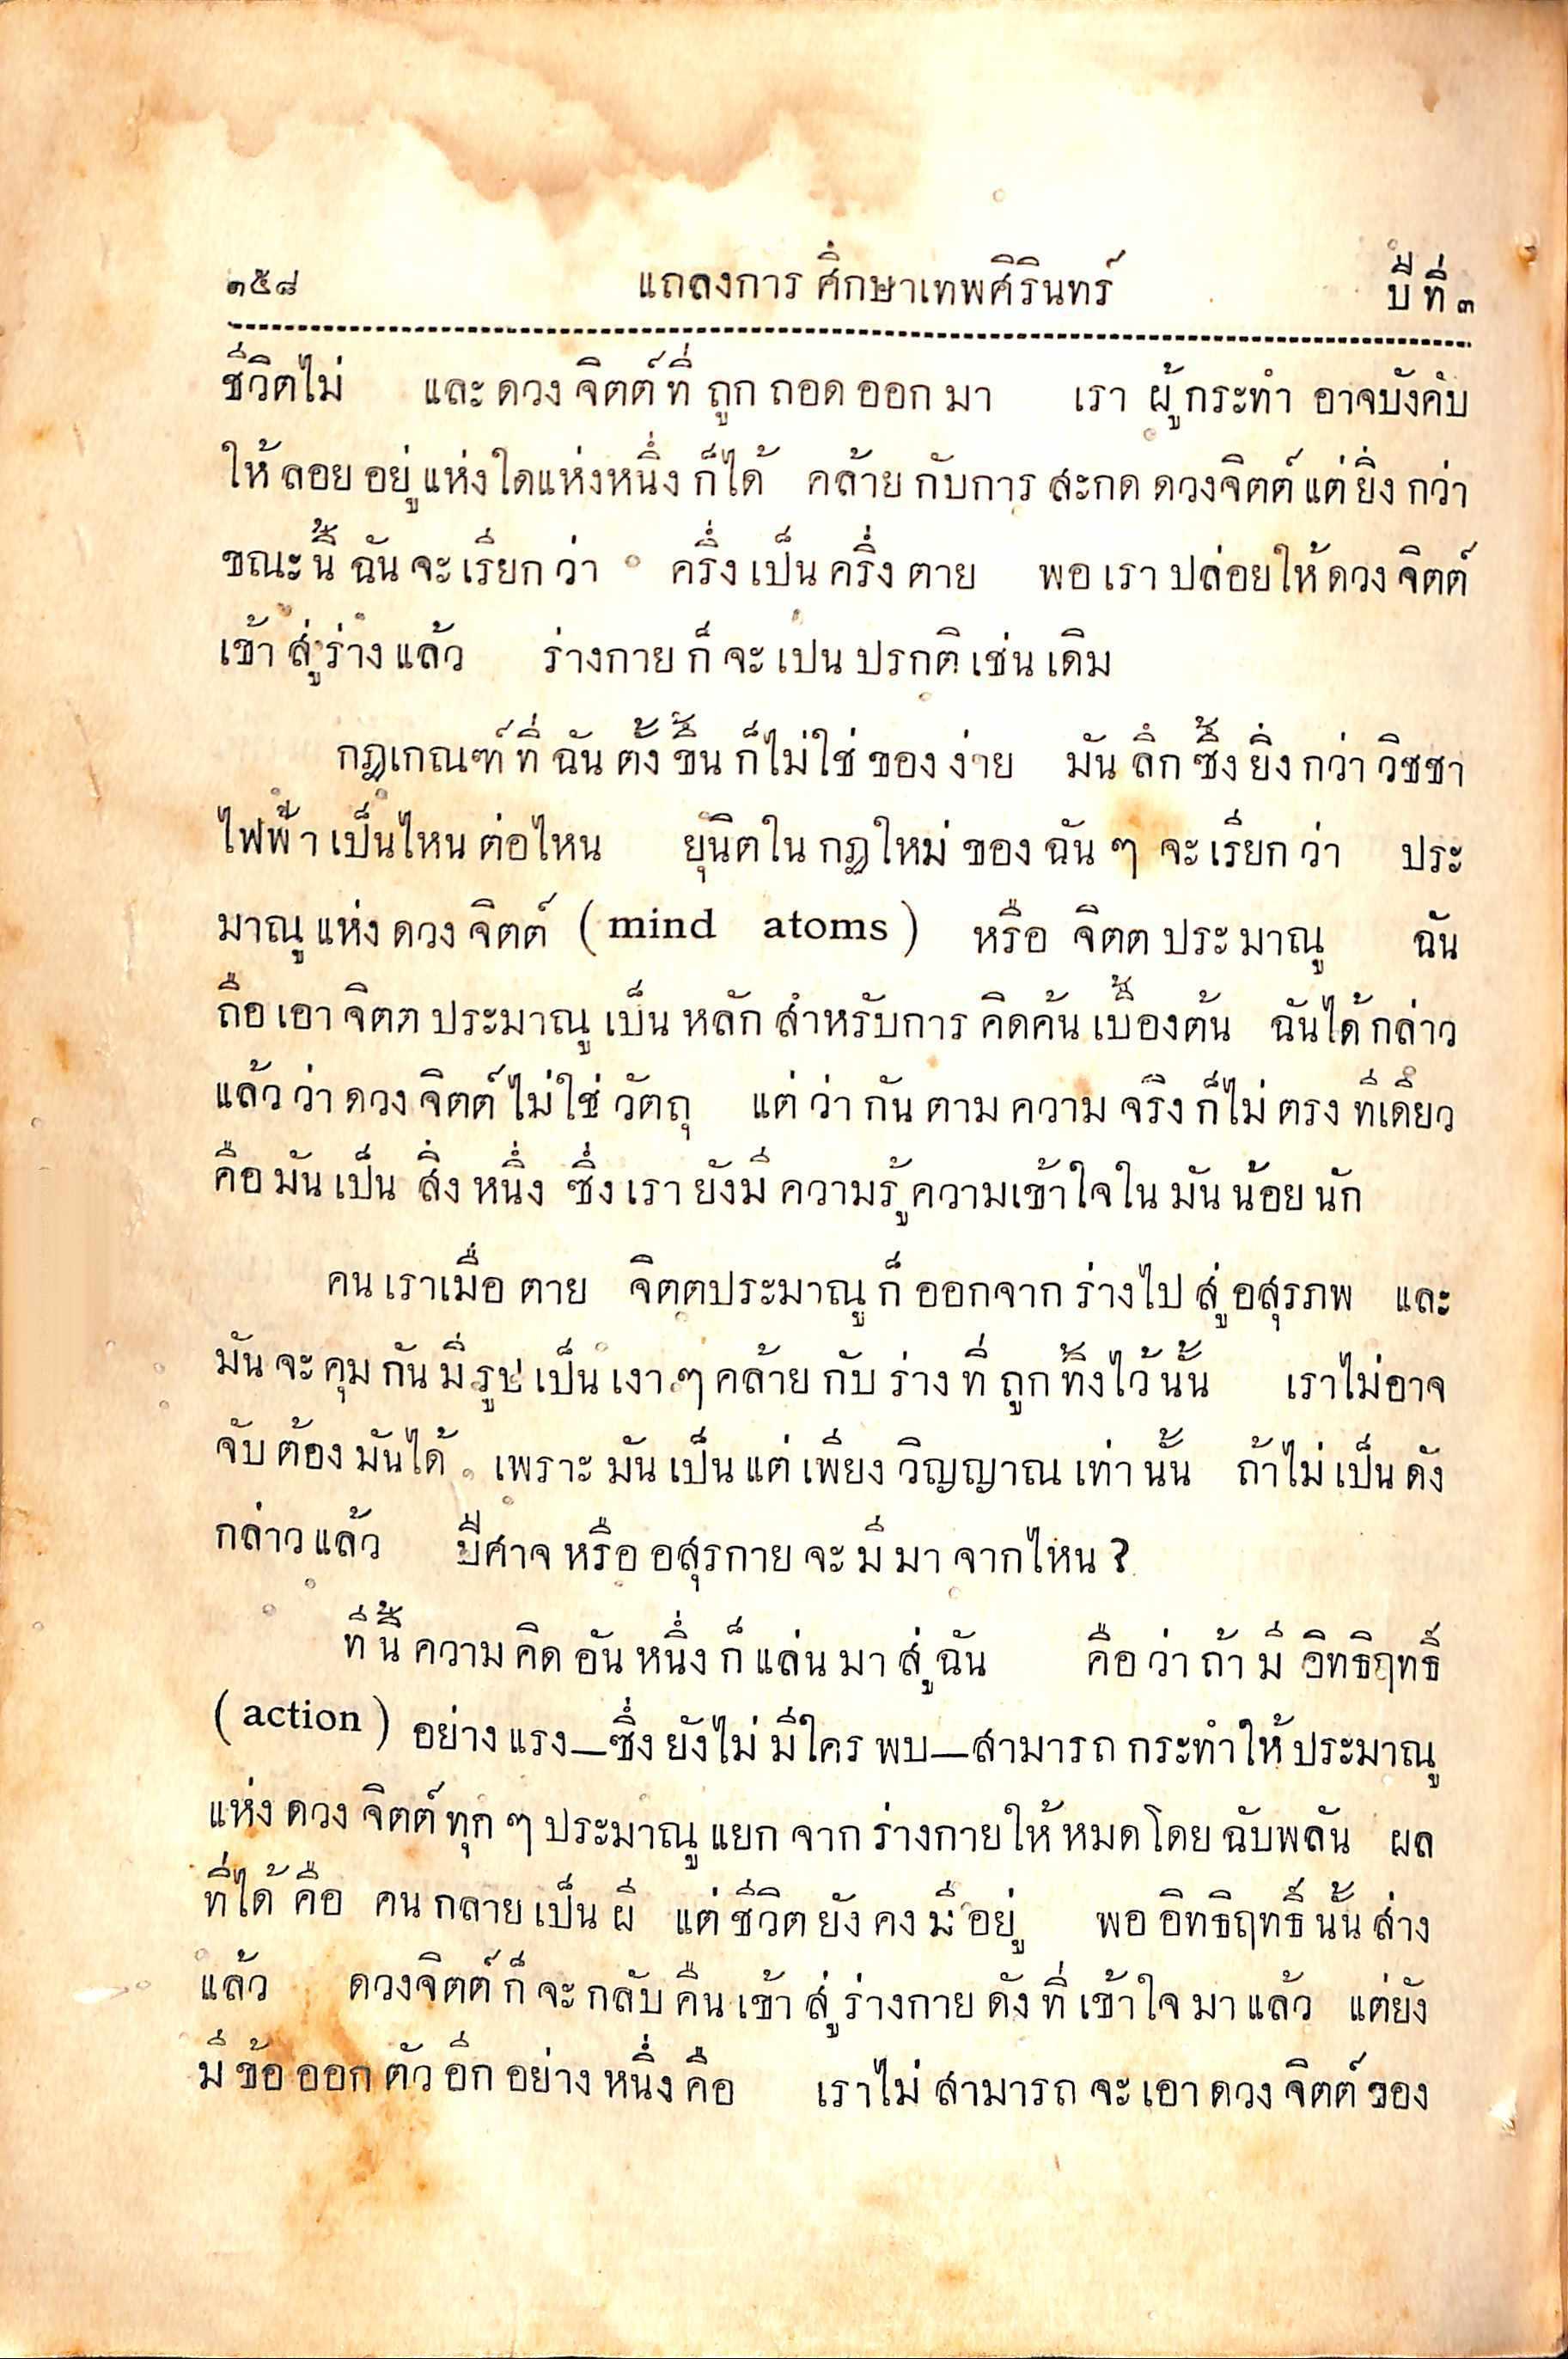 ๑๕๘ แถลงการ ศึกษาเทพศิรินทร์ ปีที่ ๓
ชีวิตไม่ และดวงจิตต์ที่ถูกถอดออกมา เราผู้กระทำอาจบังคับ
ให้ลอยอยู่แห่งใดแห่งหนึ่งก็ได้ คล้ายกับการสะกดดวงจิตต์แต่ยิ่งกว่า
ขณะนี้ฉันจะเรียกว่า ครึ่งเป็นครึ่งตาย พอเราปล่อยให้ดวงจิตต์
เข้าสู่ร่างแล้ว ร่างกายก็จะเปนปรกติเช่นเดิม
กฎเกณฑ์ที่ฉันตั้งขึ้นก็ไม่ใช่ของง่าย มันลึกซึ้งยิ่งกว่าวิชชา
ไฟฟ้าเป็นไหนต่อไหน ยุนิตในกฎใหม่ของฉัน ๆ จะเรียกว่า ประ
มาณูแห่งดวงจิตต์ (mind atoms) หรือ จิตตประมาณู ฉัน
ถือเอาจิตตประมาณูเป็นหลักสำหรับการคิดค้นเบื้องต้น ฉันได้กล่าว
แล้วว่าดวงจิตต์ไม่ใช่วัตถุ แต่ว่ากันตามความจริงก็ไม่ตรงทีเดียว
คือมันเป็นสิ่งหนึ่ง ซึ่งเรายังมีความรู้ความเข้าใจในมันน้อยนัก
คนเราเมื่อตาย จิตตประมาณูก็ออกจากร่างไปสู่อสุรภพ และ
มันจะคุมกันมีรูปเป็นเงา ๆ คล้ายกับร่างที่ถูกทิ้งไว้นั้น เราไม่อาจ
จับต้องมันได้ เพราะมันเป็นแต่เพียงวิญญาณเท่านั้น ถ้าไม่เป็นดัง
กล่าวแล้ว ปีศาจหรืออสุรกายจะมีมาจากไหน ?
ทีนี้ความคิดอันหนึ่งก็แล่นมาสู่ฉัน คือว่าถ้ามี อิทธิฤทธิ์
(action) อย่างแรง—ซึ่งยังไม่มีใครพบ—สามารถกระทำให้ประมาณู
แห่งดวงจิตต์ทุก ๆ ประมาณูแยกจากร่างกายให้หมดโดยฉับพลัน ผล
ที่ได้คือ คนกลายเป็นผี แต่ชีวิตยังคงมีอยู่ พออิทธิฤทธิ์นั้นส่าง
แล้ว ดวงจิตต์ก็จะกลับคืนเข้าสู่ร่างกายดังที่เข้าใจมาแล้ว แต่ยัง
มีข้อออกตัวอีกอย่างหนึ่งคือ เราไม่สามารถจะเอาดวงจิตต์ของ